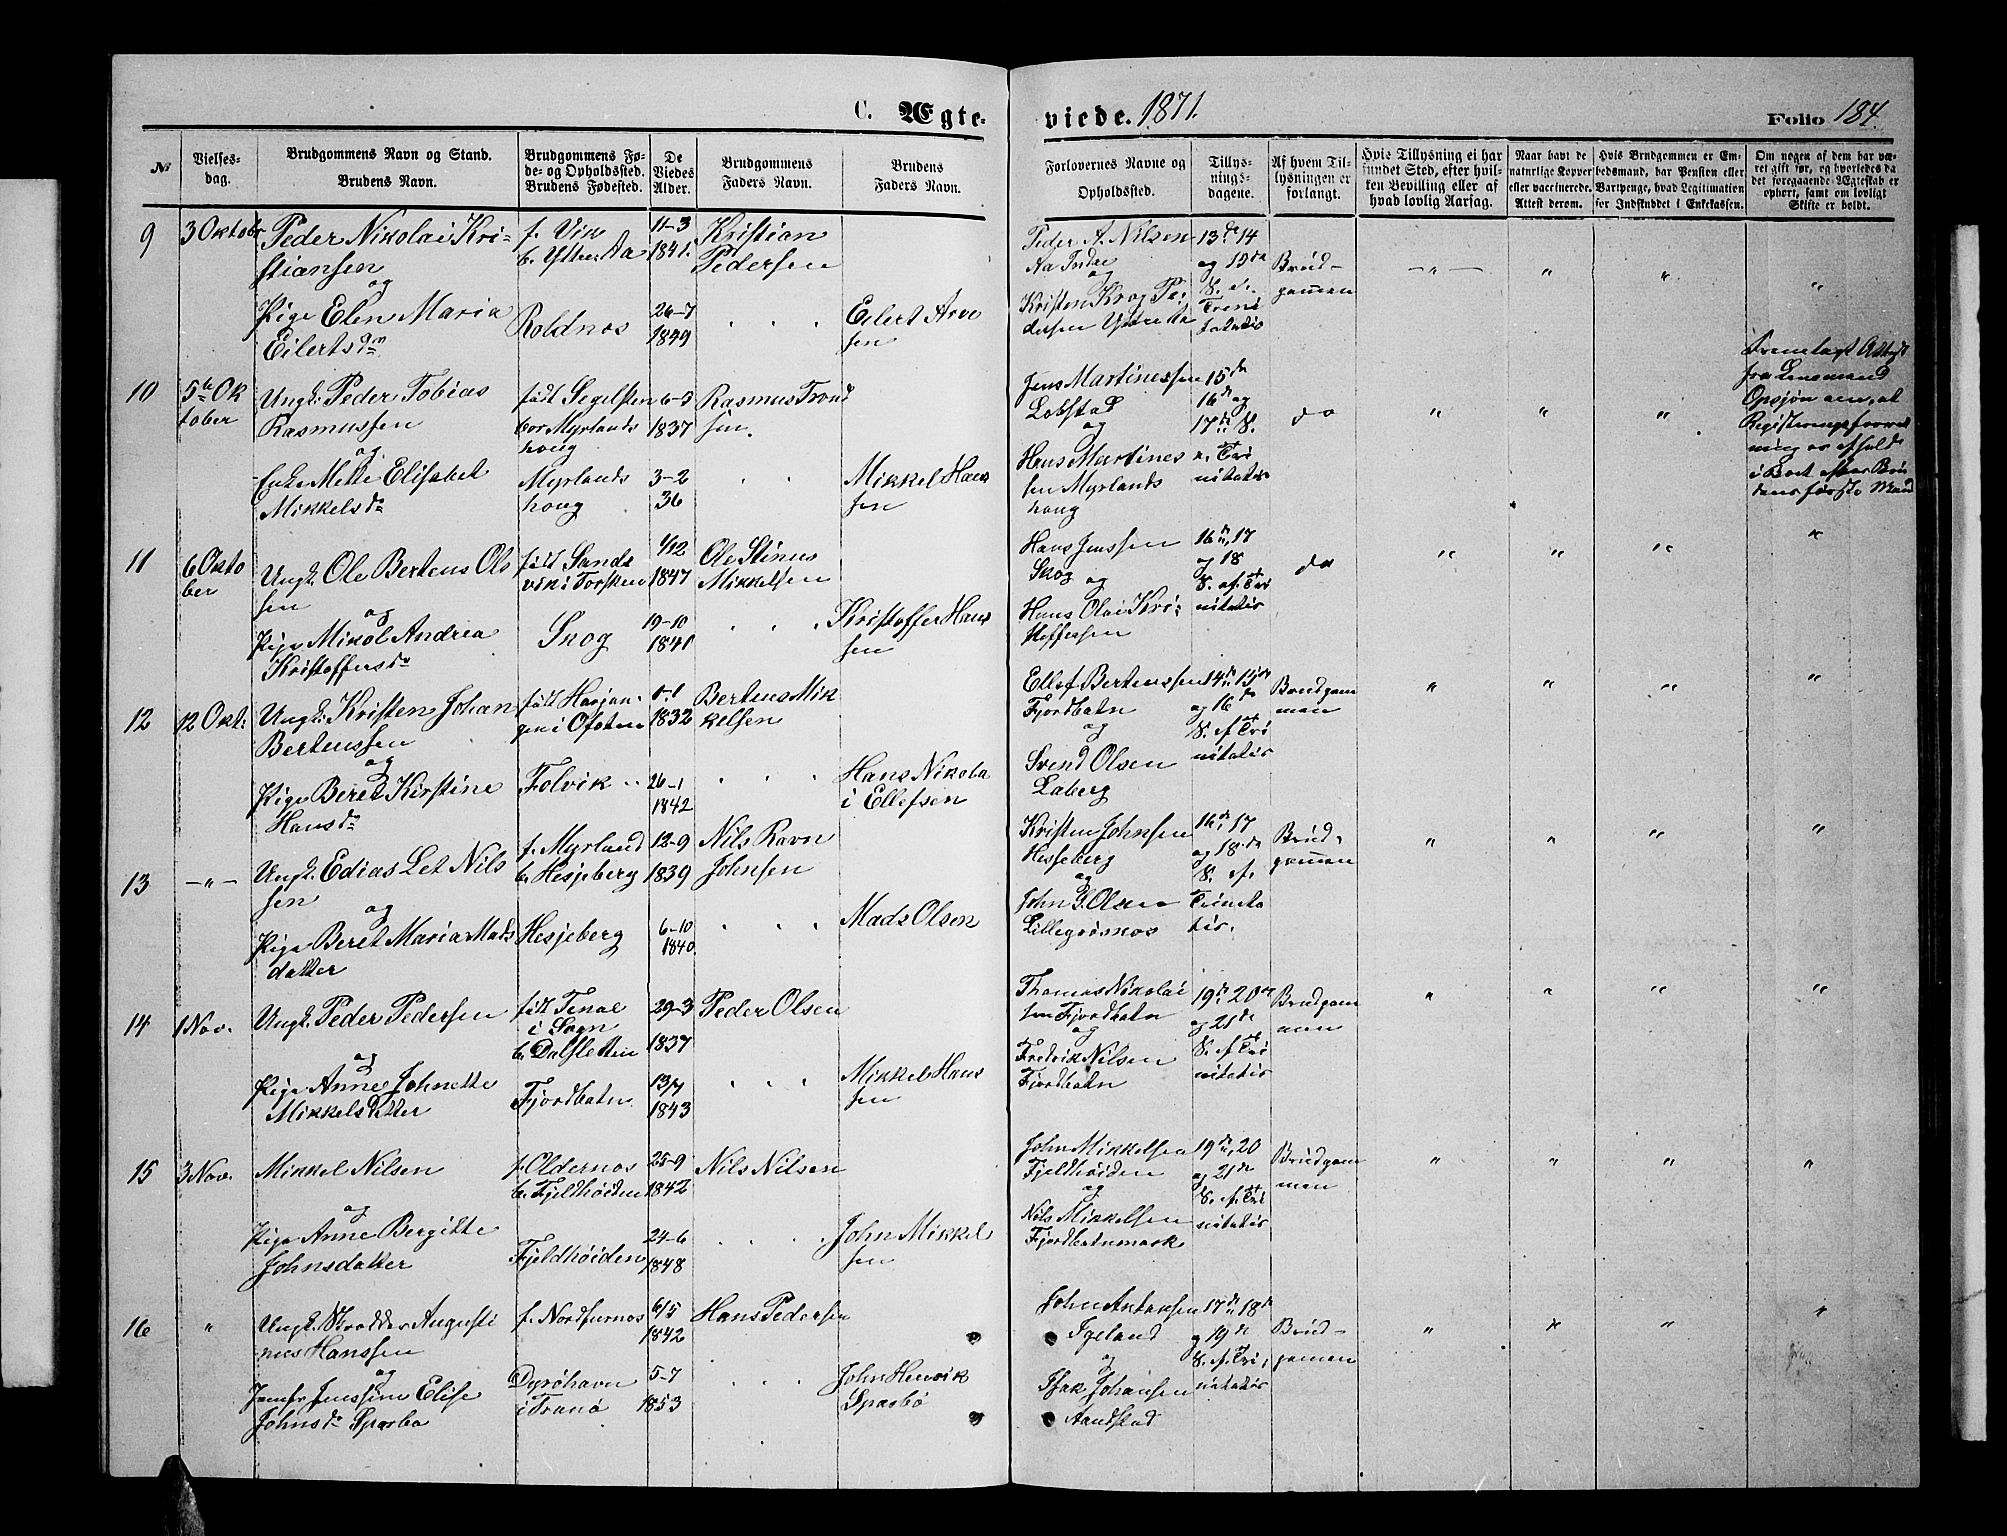 C. Ægte-
viede. 1871.
Folio 184.
№
Vielses-
dag.
Brudgommens Navn og Stand.
Brudens Navn.
Brudgommens Fø-
de- og Opholdssted.
Brudens Fødested.
De
Viedes
Alder.
Brudgommens
Faders Navn.
Brudens
Faders Navn.
Forlovernes Navne og
Opholdssted.
Tillys-
nings-
dagene.
Af hvem Til-
lysningen er
forlangt.
Hvis Tillysning ei har
fundet Sted, efter hvil-
ken Bevilling eller af
hvad lovlig Aarsag.
Naar havt de
naturlige Kopper
eller vaccinerede.
Attest derom.
Hvis Brudgommen er Em-
bedsmand, har Pension eller
Vartpenge, hvad Legitimation
for Indskuddet i Enkekassen.
Om nogen af dem har væ-
ret gift før, og hvorledes da
det foregaaende Ægteskab er
ophørt, samt om lovligt
Skifte er holdt.
9
3 Oktobr
Peder Nikolai Kri-
stiansen
og
Pige Elen Maria
Eilertsdn
f. Vik
b. Ytter Aa
Roldnos
11-3
1841.
26-7
1849
Kristian
Pedersen
Eilert Arve
sen
Peder A. Nilsen
Aa Indre
og
Kristen Krog Pe-
dersen Yttre Aa
13de 14
og 15de
S. e.
Trini
tatis
Brud-
gommen
-"-
"
"
"
10
5te Ok
tober
Ungk. Peder Tobias
Rasmussen
og
Enke Mette Elisabet
Mikkelsdn
født Segelsten
bor Myrlands
houg
Myrlands
houg
6-3
1837
3-2
36
Rasmus Trond
sen.
Mikkel Han
sen
Jens Martinessen
Lobstad
og
Hans Martines
sen Myrlands
houg
15de
16de og
17de S.
e. Tri
nitatis
do
"
"
"
Fremlagt Attest
fra Lensmand
Registreringsforret
ning er afholdt
i Boet efter Bru
dens første Mand
11
6 Okto
ber
Ungk. Ole Bertens Ols
sen
og
Pige Mikol Andrea
Kristoffersdn
født Sands
vik i Torsken
Skog
4/12
1847
19-10
1841
Ole Stinus
Mikkelsen
Kristoffer Han
sen
Hans Jenssen
Skog
og
Hans Olai Kri-
stoffersen
16de, 17
og 18
S. ef. Tri
nitatis
do
"
"
"
"
12
12 Okt.
Ungk. Kristen Johan
Bertenssen
og
Pige Beret Kirstine
Hansdn
født Harjan-
gen i Ofoten
Folvik
1-1
1832
26-1
1842
Bertens Mik
kelsen
Hans Nikola
i Ellefsen
Ellef Bertenssen
Fjordbotn
og
Svend Olsen
Laberg
14de, 15de
og 16de
S. ef Tri
nitatis
Brudgom
men
"
"
"
"
13
-"-
Ungk. Edias Let Nils
sen
og
Pige Beret Maria Mads
datter
f. Myrland
b. Hesjeberg
Hesjeberg
12-9
1839
6-10
1840.
Nils Ravn
Johnsen
Mads Olsen
Kristen Johnsen
Hesjeberg
og
John G. Olsen
16de 17
og 18de
S. ef.
Trinita
tis.
Brud-
gommen
"
"
"
"
14
1 Nov.
Ungk. Peder Pedersen
og
Pige Anne Johnette
Mikkelsdatter
i Sogn
b. Dalsletten
Fjordbotn
29-3
1837
13/7
1843
Peder Olsen
Mikkel Hans
sen
Thomas Nikolai
sen Fjordbotn
og
Fredrik Nilsen
Fjordbotn
19de 20de
og 21de
S. ef Tri
nitatis
Brudgom
men
"
"
"
"
15
3 Nov.
Mikkel Nilsen
og
Pige Anne Bergitte
Johnsdatter
f. Oldernos
b. Fjeldhøiden
Fjeldhøiden
25-9
1842
24-6
1848
Nils Nilsen
John Mikkel
sen
John Mikkelsen
Fjeldhøiden
og
Nils Mikkelsen
Fjordbotnmark
19de, 20
og 21de
S. ef. Tri
nitatis
Brudgom
men
"
"
"
"
16
"
Ungk. Augusti
nus Hanssen
og
Jomfr Jenssine Elise
Johnsdn Sparbo
f. Nordfurnos
Dyrøhavn
i Tranø
6/5
1842
5-7
1853
Hans Pedersen
John Henrik
Sparbo
John Antonsen
og
Isak Johansen
Aandstad
17de 18de
og 19de
S. ef. Tri-
nitatis
Brud-
gommen
"
"
"
"